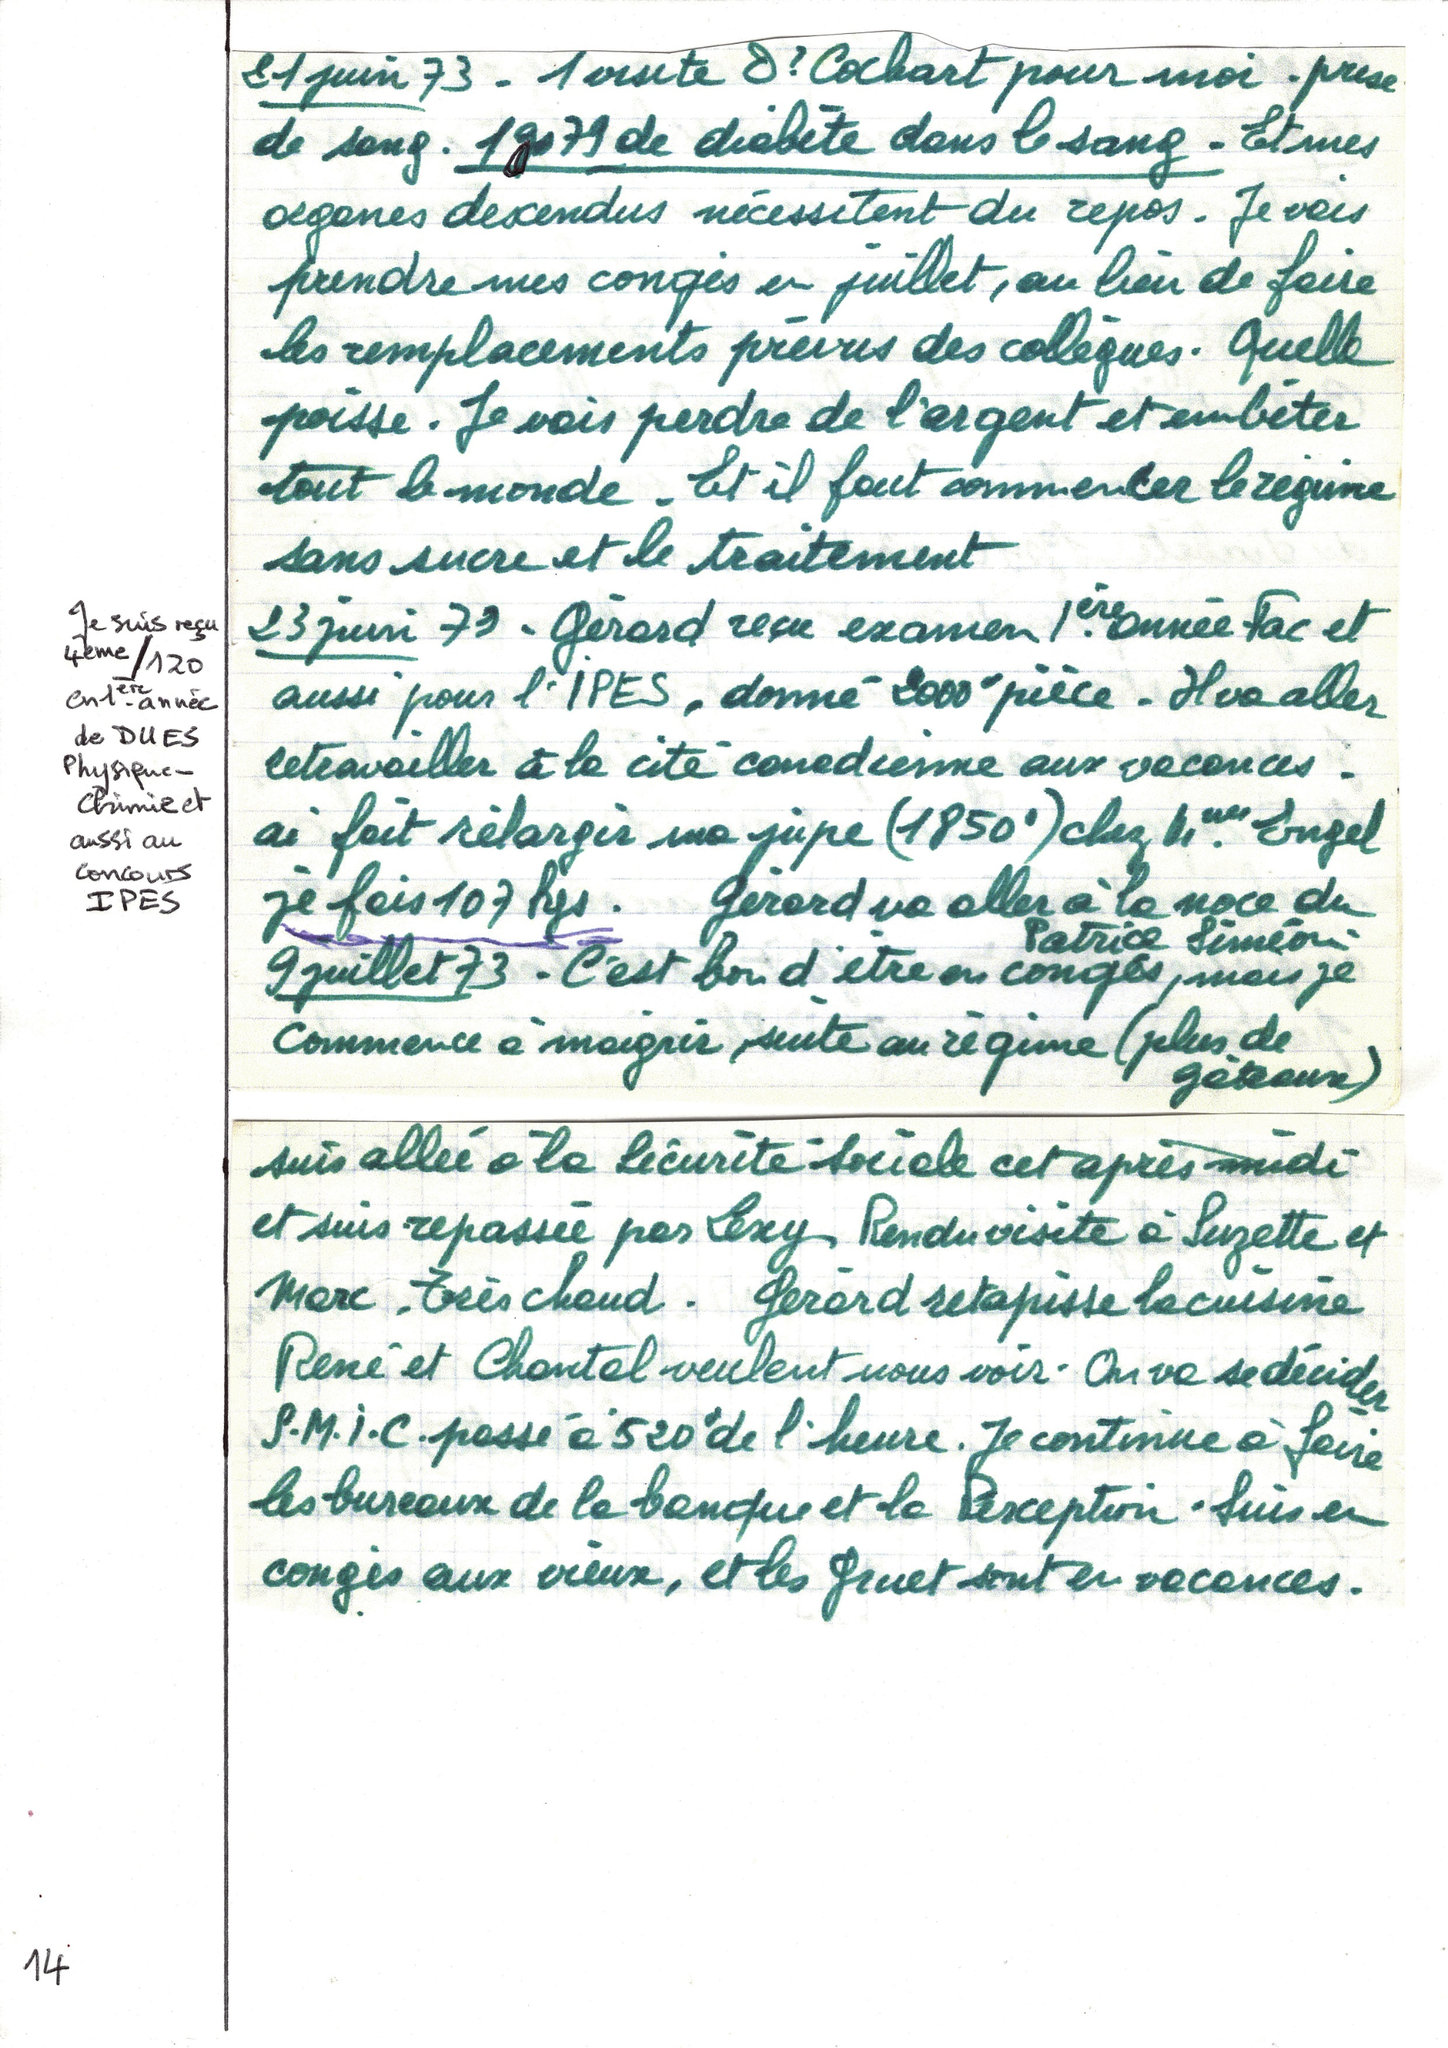 21 juin 73 - 1 visite Dr Cochart pour moi - prise
de sang. 1g79 de diabète dans le sang - Et mes
organes descendus nécessitent du repos. Je vais
prendre mes congés en juillet, au lieu de faire
les remplacements prévus des collègues. Quelle
poisse. Je vais perdre de l'argent et embêter
tout le monde. Et il faut commencer le régime
sans sucre et le traitement
23 juin 73 - Gérard reçu examen 1ère année Fac et
aussi pour l'IPES, donné 2000' pièce - Il va aller
retravailler à la cité canadienne aux vacances -
ai fait rélargir ma jupe (1850') chez Mme Engel
je fais 107 kgs. Gérard va aller à la noce du
Patrice Siméon
9 juillet 73 - C'est bon d'être en congés, mais je
commence à maigrir, suite au régime (plus de
gâteaux)
suis allée à la Sécurité Sociale cet après-midi
et suis repassée par Lexy. Rendu visite à Suzette et
Marc. Très chaud. Gérard retapisse la cuisine
René et Chantal veulent nous voir. On va se décider
S.M.I.C. passé à 520' de l'heure. Je continue à faire
les bureaux de la banque et la Perception. Suis en
congés aux vieux, et les Gruet sont en vacances.
Je suis reçu
4ème/120
en 1ère année
de DUES
Physique-
Chimie et
aussi au
concours
IPES
14